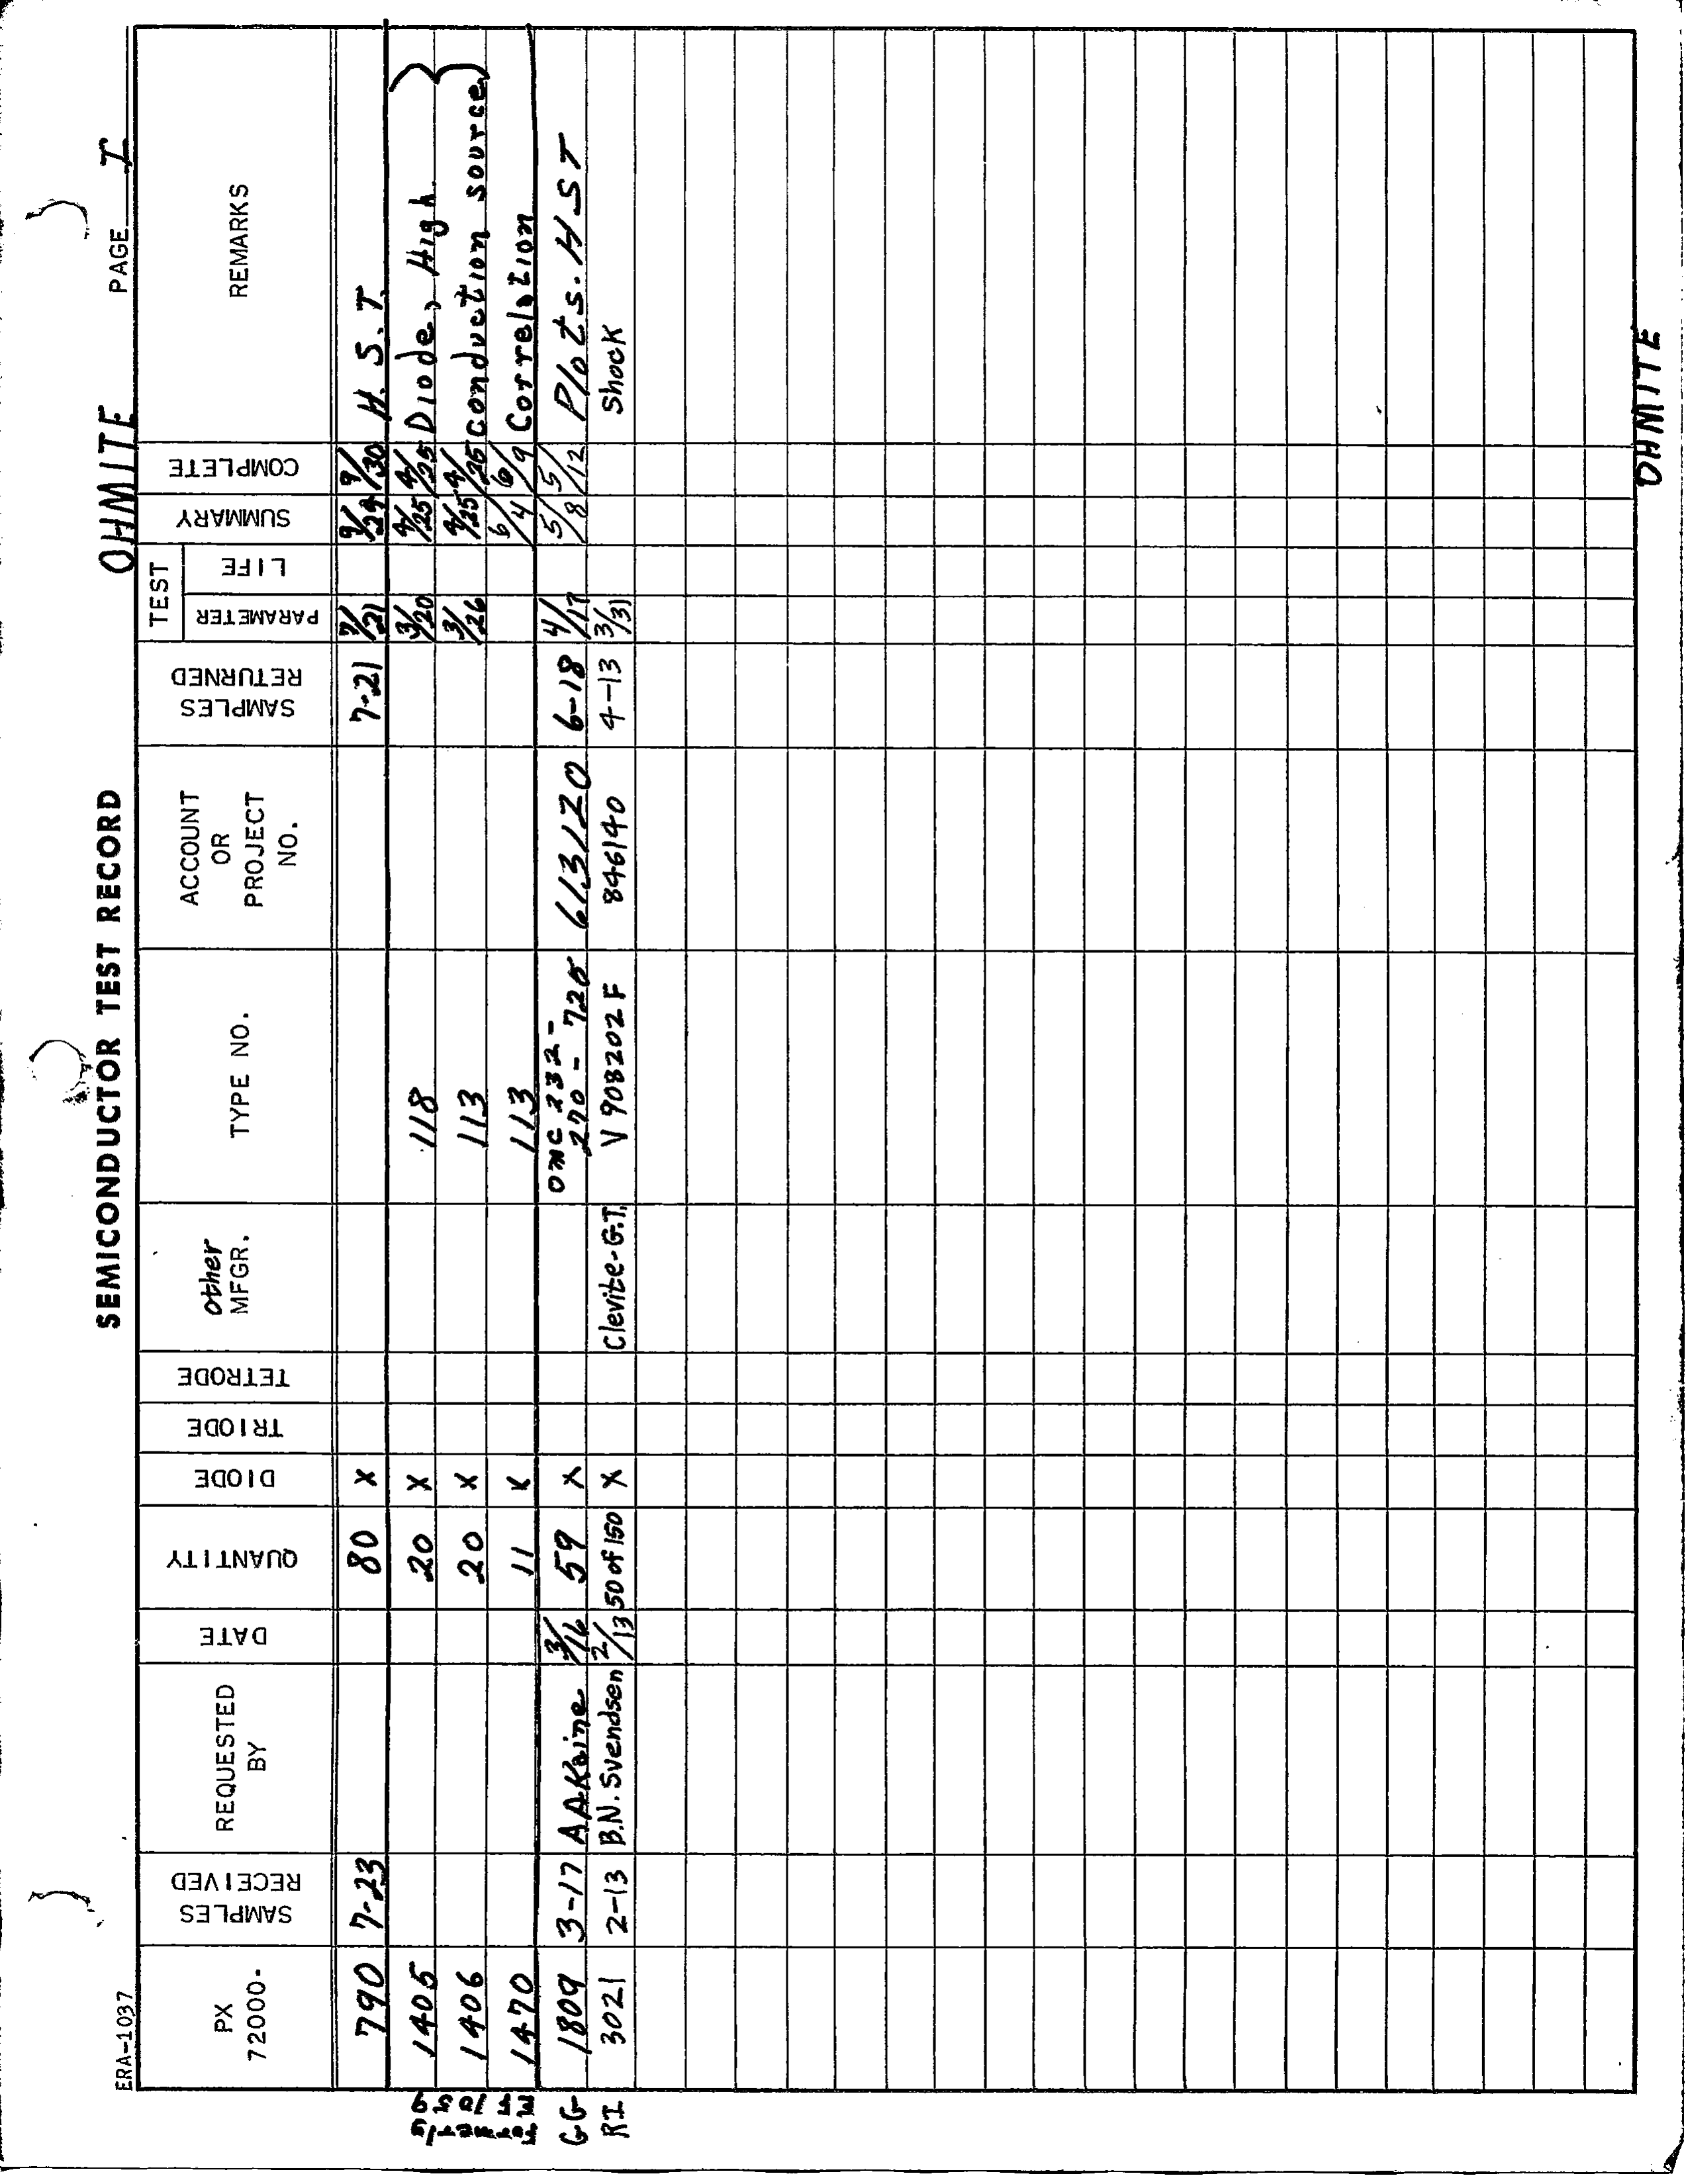 ERA-1037
SEMICONDUCTOR TEST RECORD
OHMITE PAGE I
PX 72000. SAMPLES RECEIVED REQUESTED BY DATE QUANTITY DIODE TRIODE TETRODE other MFGR. TYPE NO. ACCOUNT OR PROJECT NO. SAMPLES RETURNED TEST PARAMETER LIFE SUMMARY COMPLETE REMARKS
790 7-23 80 X 7-21 7/21 9/29 9/30 H.S.T.
1405 20 X 118 3/20 4/25 4/25 Diode, High
1406 20 X 113 3/26 4/25 4/25 conduction source
1470 11 X 113 6/4 6/9 Correlation
formerly
GG 1809 3-17 AAKaine 3/16 59 X OMC 232-270-725 613120 6-18 4/17 5/8 5/12 Plots. HST
RI 3021 2-13 B.N. Svendsen 2/13 50 of 150 X Clevite-G.T. V 908202F 846140 4-13 3/31 Shock
OHMITE